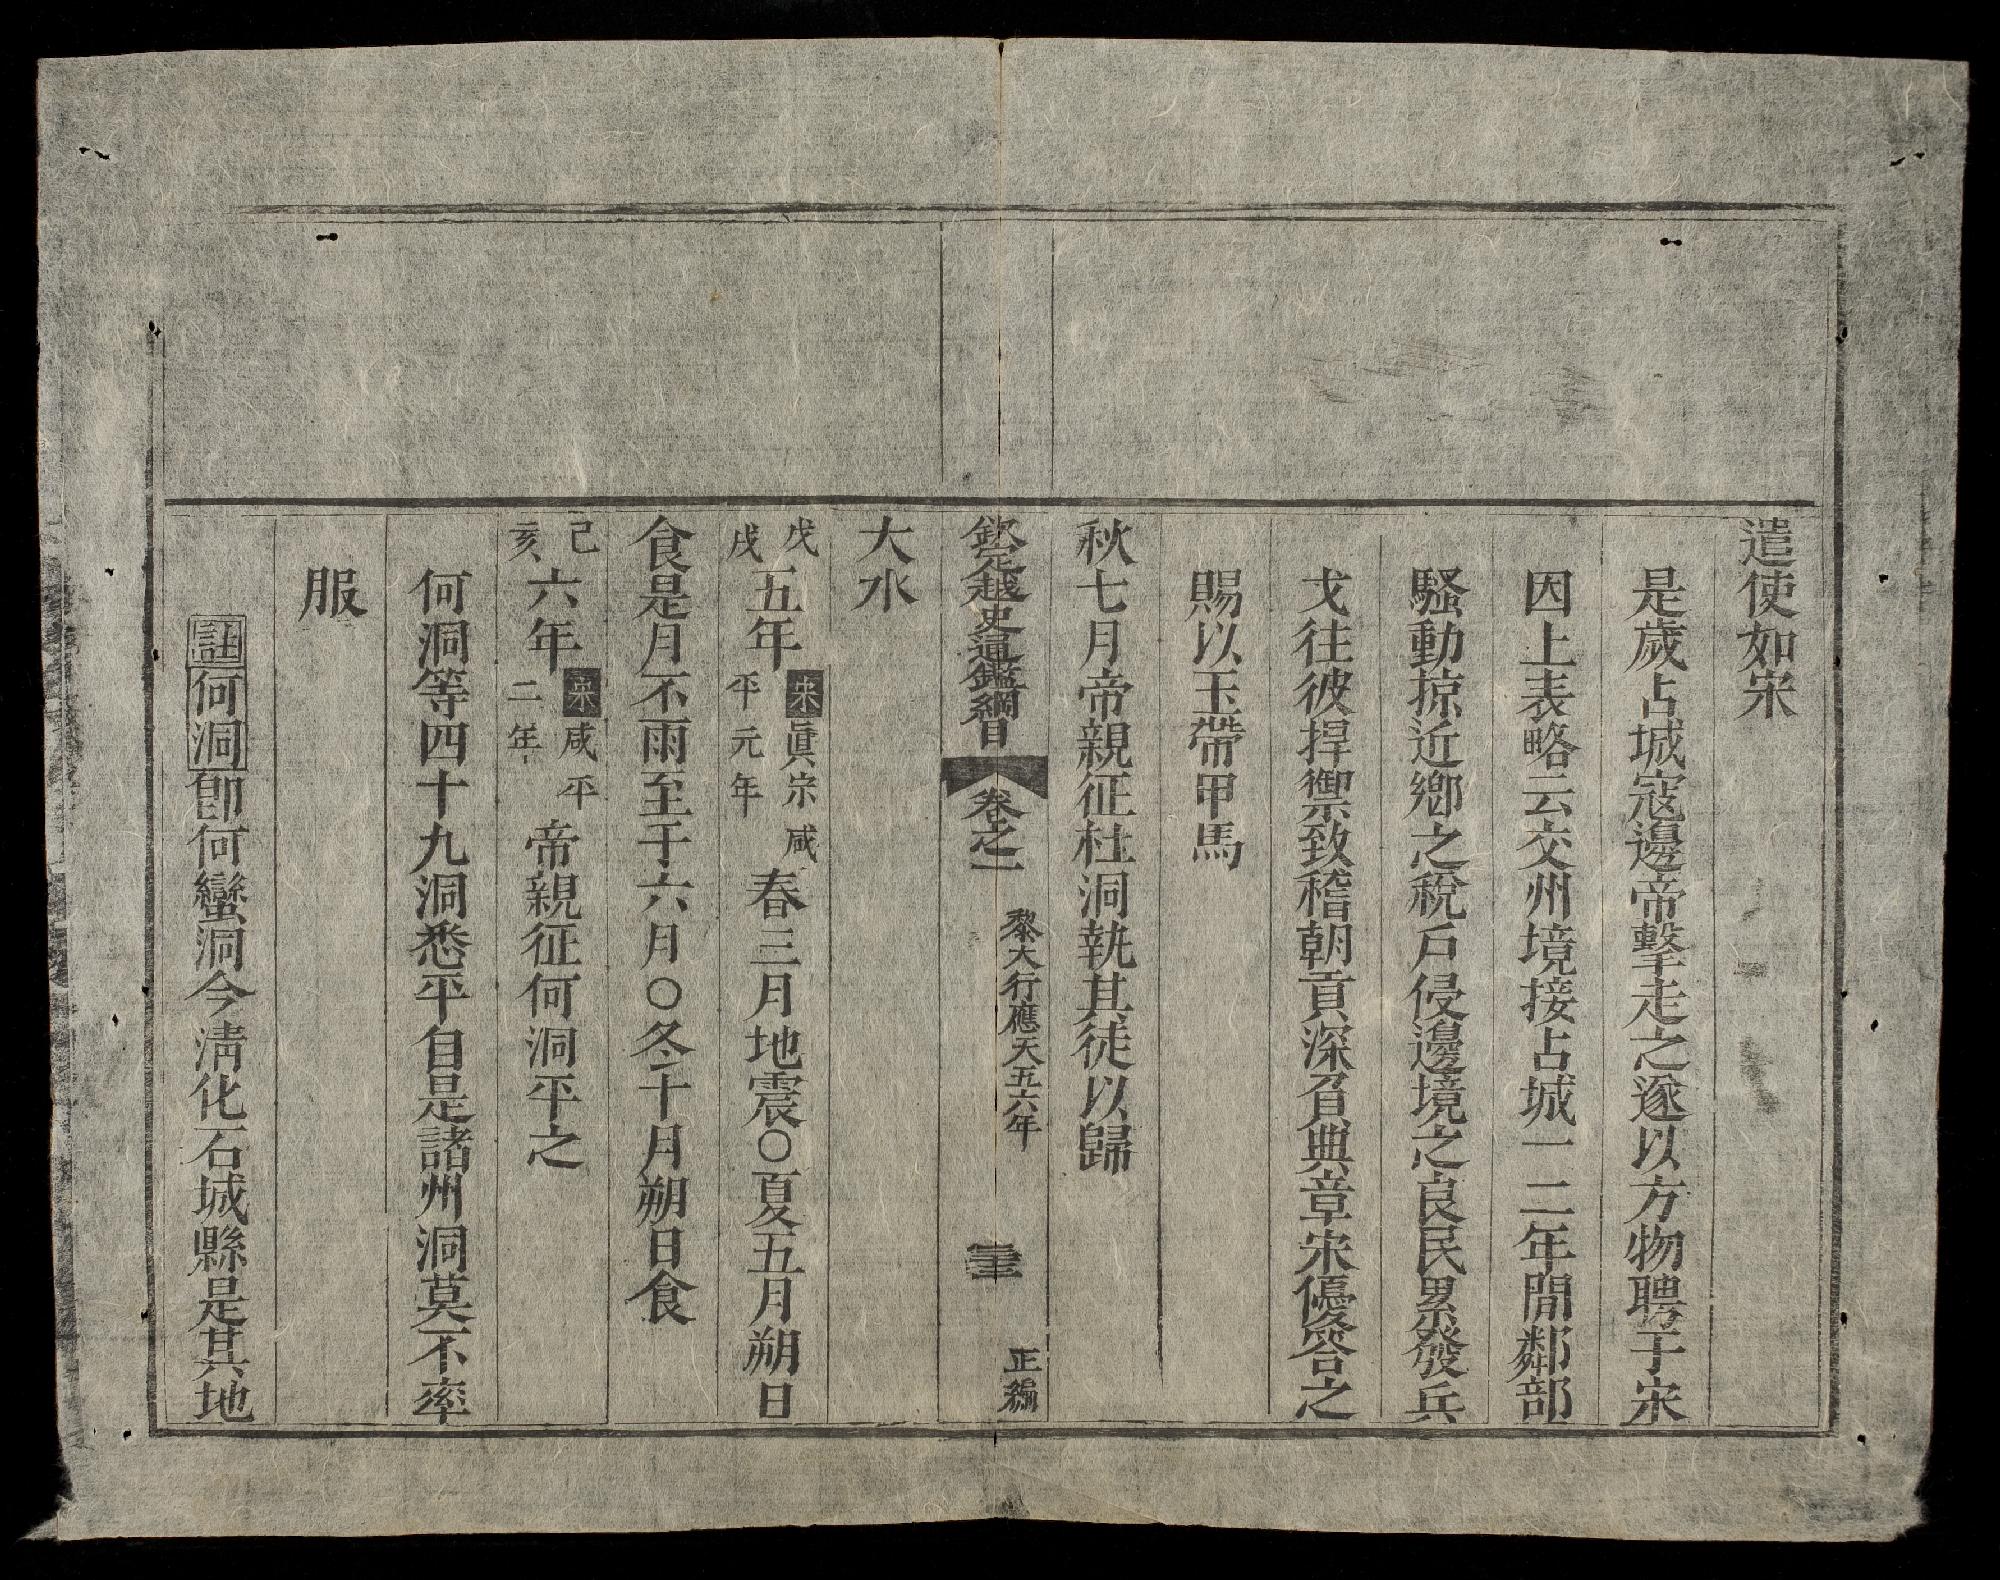 遣使如宋
是歲占城寇邊帝擊走之遂以方物聘于宋
因上表略云交州境接占城一二年間鄰部
騷動掠近鄉之稅戶侵邊境之良民累發兵
戈往彼捍禦致稽朝貢深負典章宋優答之
賜以玉帶甲馬
秋七月帝親征杜洞執其徒以歸
欽定越史通鑑綱目 卷之一 黎大行應天五六年 三三 正編
大水
戊戌五年宋眞宗咸平元年春三月地震○夏五月朔日
食是月不雨至于六月○冬十月朔日食
己亥六年宋咸平二年帝親征何洞平之
何洞等四十九洞悉平自是諸州洞莫不率
服
註何洞卽何蠻洞今淸化石城縣是其地